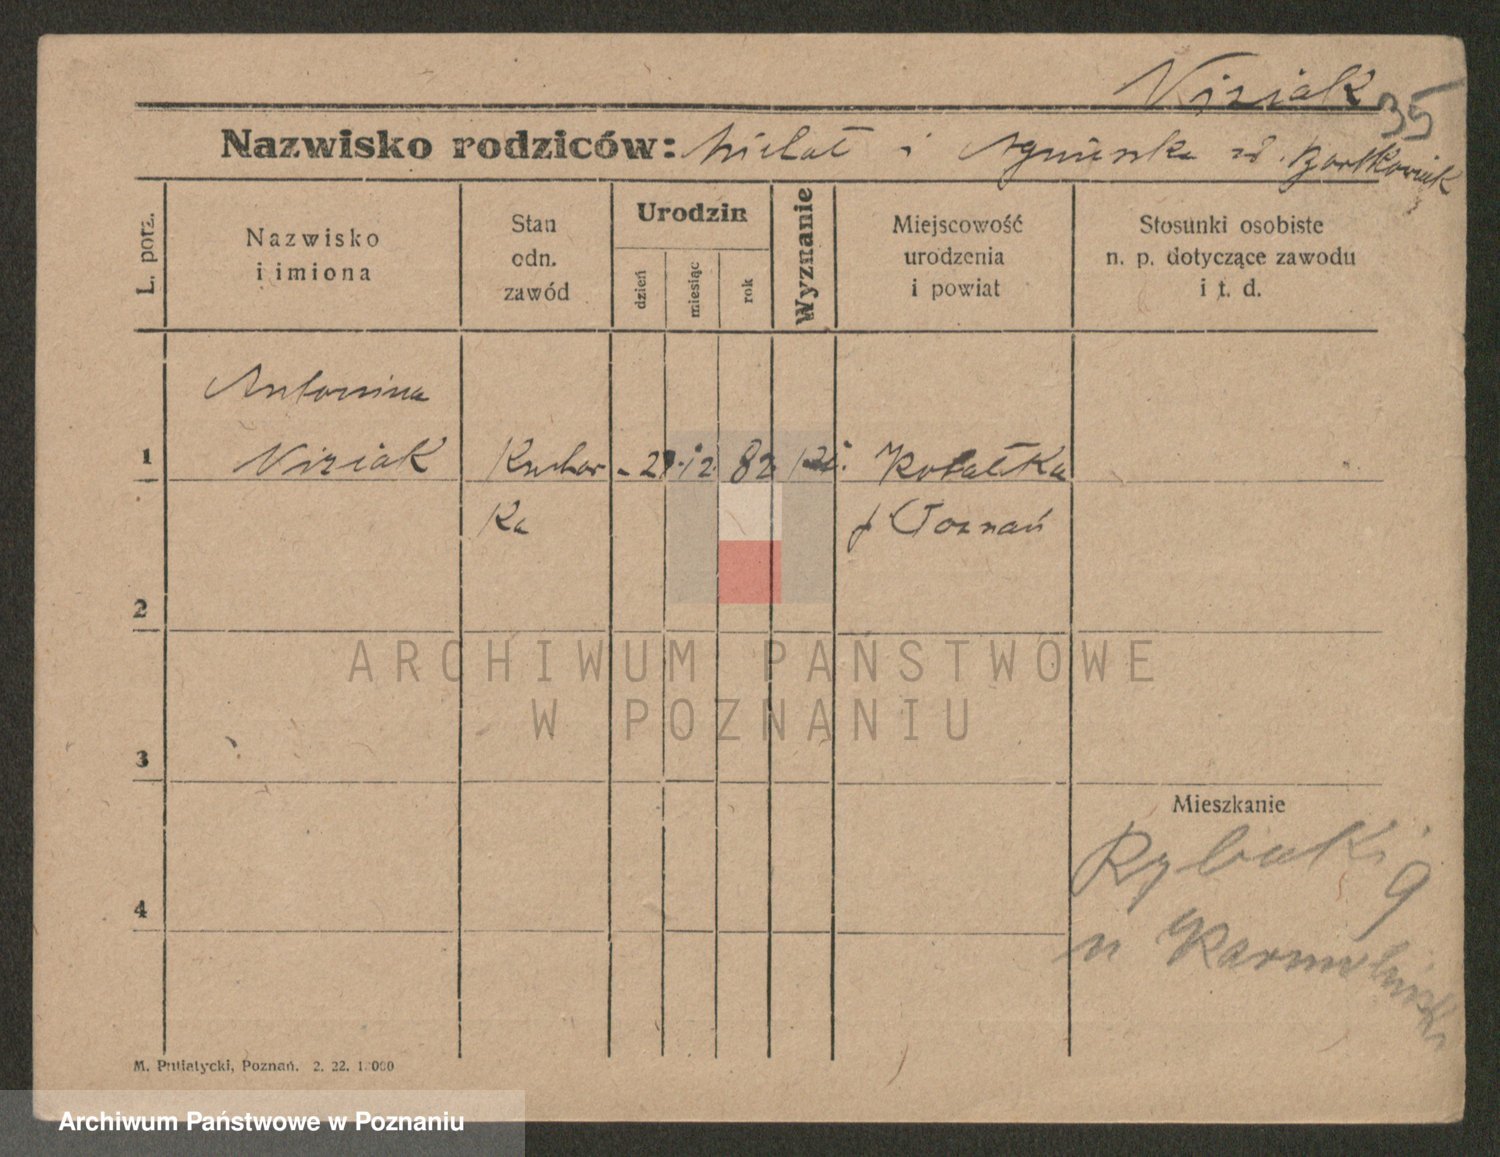 Niziak 35
Nazwisko rodziców: Michał i Agnieszka z d. Bartkowiak
L. porz.
Nazwisko
i imiona
Stan
odn.
zawód
Urodzin
dzień
miesiąc
rok
Wyznanie
Miejscowość
urodzenia
i powiat
Stosunki osobiste
n. p. dotyczące zawodu
i t. d.
Antonina
1 Niziak Kuchar - 12 82 Kobatka
Ka p Poznań
2
3
4
Mieszkanie
Rybaki 9
u Karmolińska
M. Putiatycki, Poznań. 2. 22. 1000
ARCHIWUM PAŃSTWOWE
W POZNANIU
Archiwum Państwowe w Poznaniu